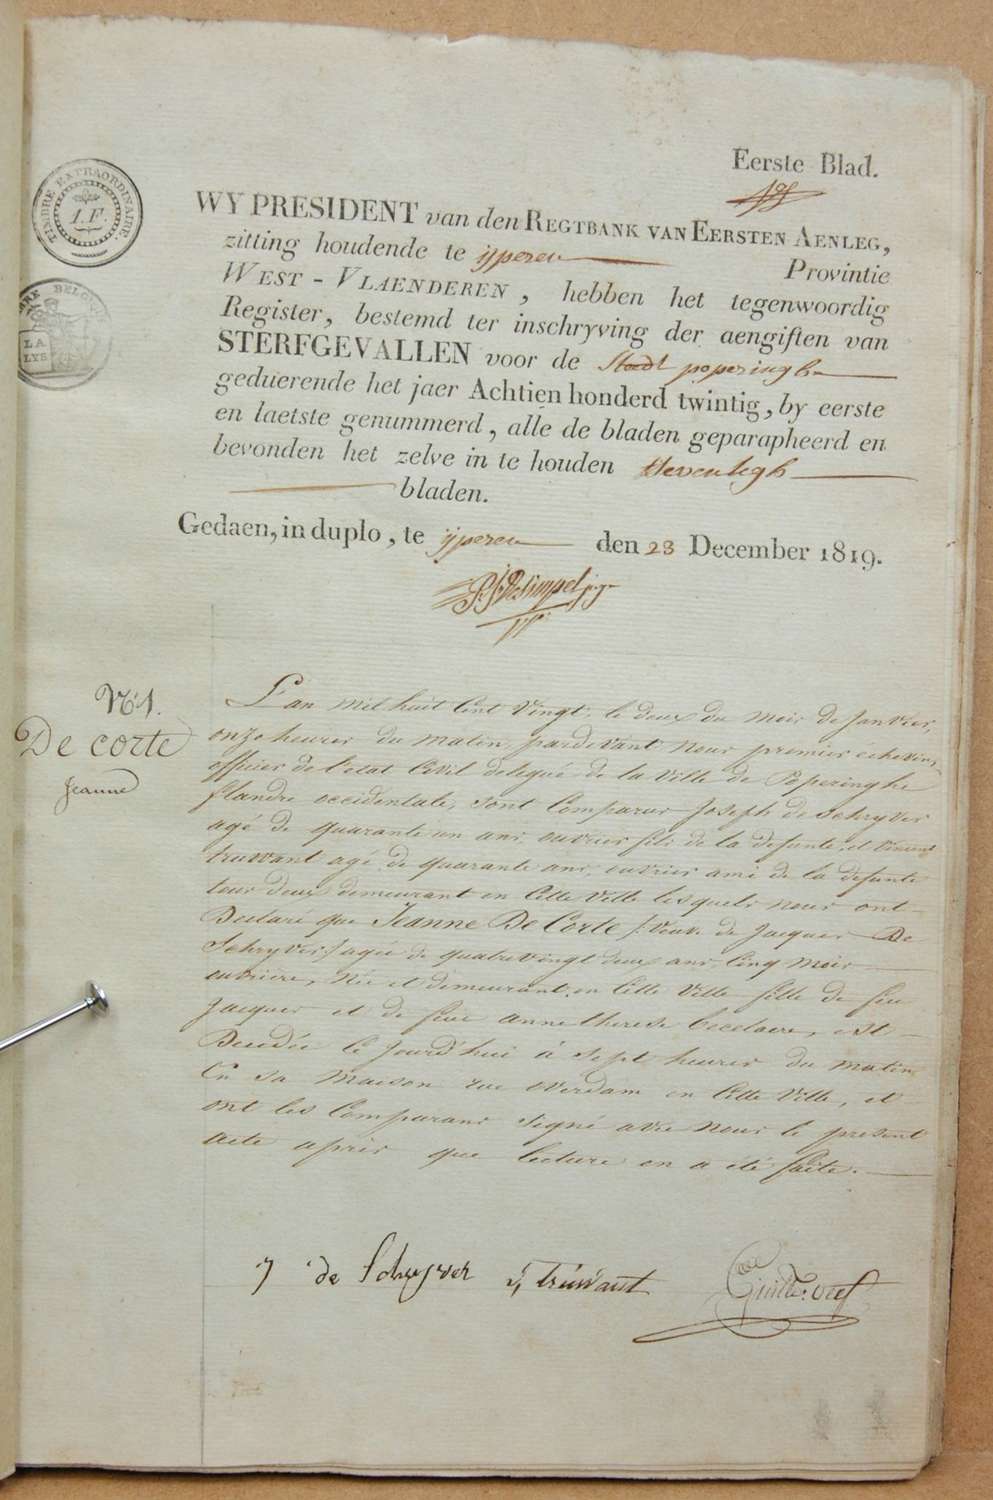 TIMBRE EXTRAORDINAIRE.
1.F.
BELGI
LA
LYS
Eerste Blad.
WY PRESIDENT van den REGTBANK VAN EERSTEN AENLEG,
zitting houdende te ijperen Provintie
WEST-VLAENDEREN, hebben het tegenwoordig
Register, bestemd ter inschryving der aengiften van
STERFGEVALLEN voor de Stadt poperingh
geduerende het jaer Achtien honderd twintig, by eerste
en laetste genummerd, alle de bladen geparapheerd en
bevonden het zelve in te houden
bladen.
Gedaen, in duplo, te ijperen den 23 December 1819.
N.1.
De corte
Jeanne
L'an mil huit Cent Vingt, le deux du mois de Janvier,
onze heures du matin, pardevant nous premier échevin,
officier de l'état Civil delegué de la Ville de Poperinghe
flandre occidentale, sont Comparus Joseph de schryver
agé de quarante un ans, ouvrier fils de la defunte et Vincent
truwant agé de quarante ans, ouvrier ami de la defunte
tous deux demeurant en Cette Ville lesquels nous ont
Declaré que Jeanne De Corte /: veuve de Jacques De
Schryver:/ agée de quatrevingt deux ans, Cinq mois
ouvriere, Née et demeurant en Cette Ville fille de feu
Jacques et de feue anne therese becelaere, est
Decedée Ce Jourd'hui à sept heures du matin
En sa maison rue overdam en Cette Ville, et
ont les Comparans signé avec nous le present
acte après que lecture en a été faite.
J de Schryver V, Truwant